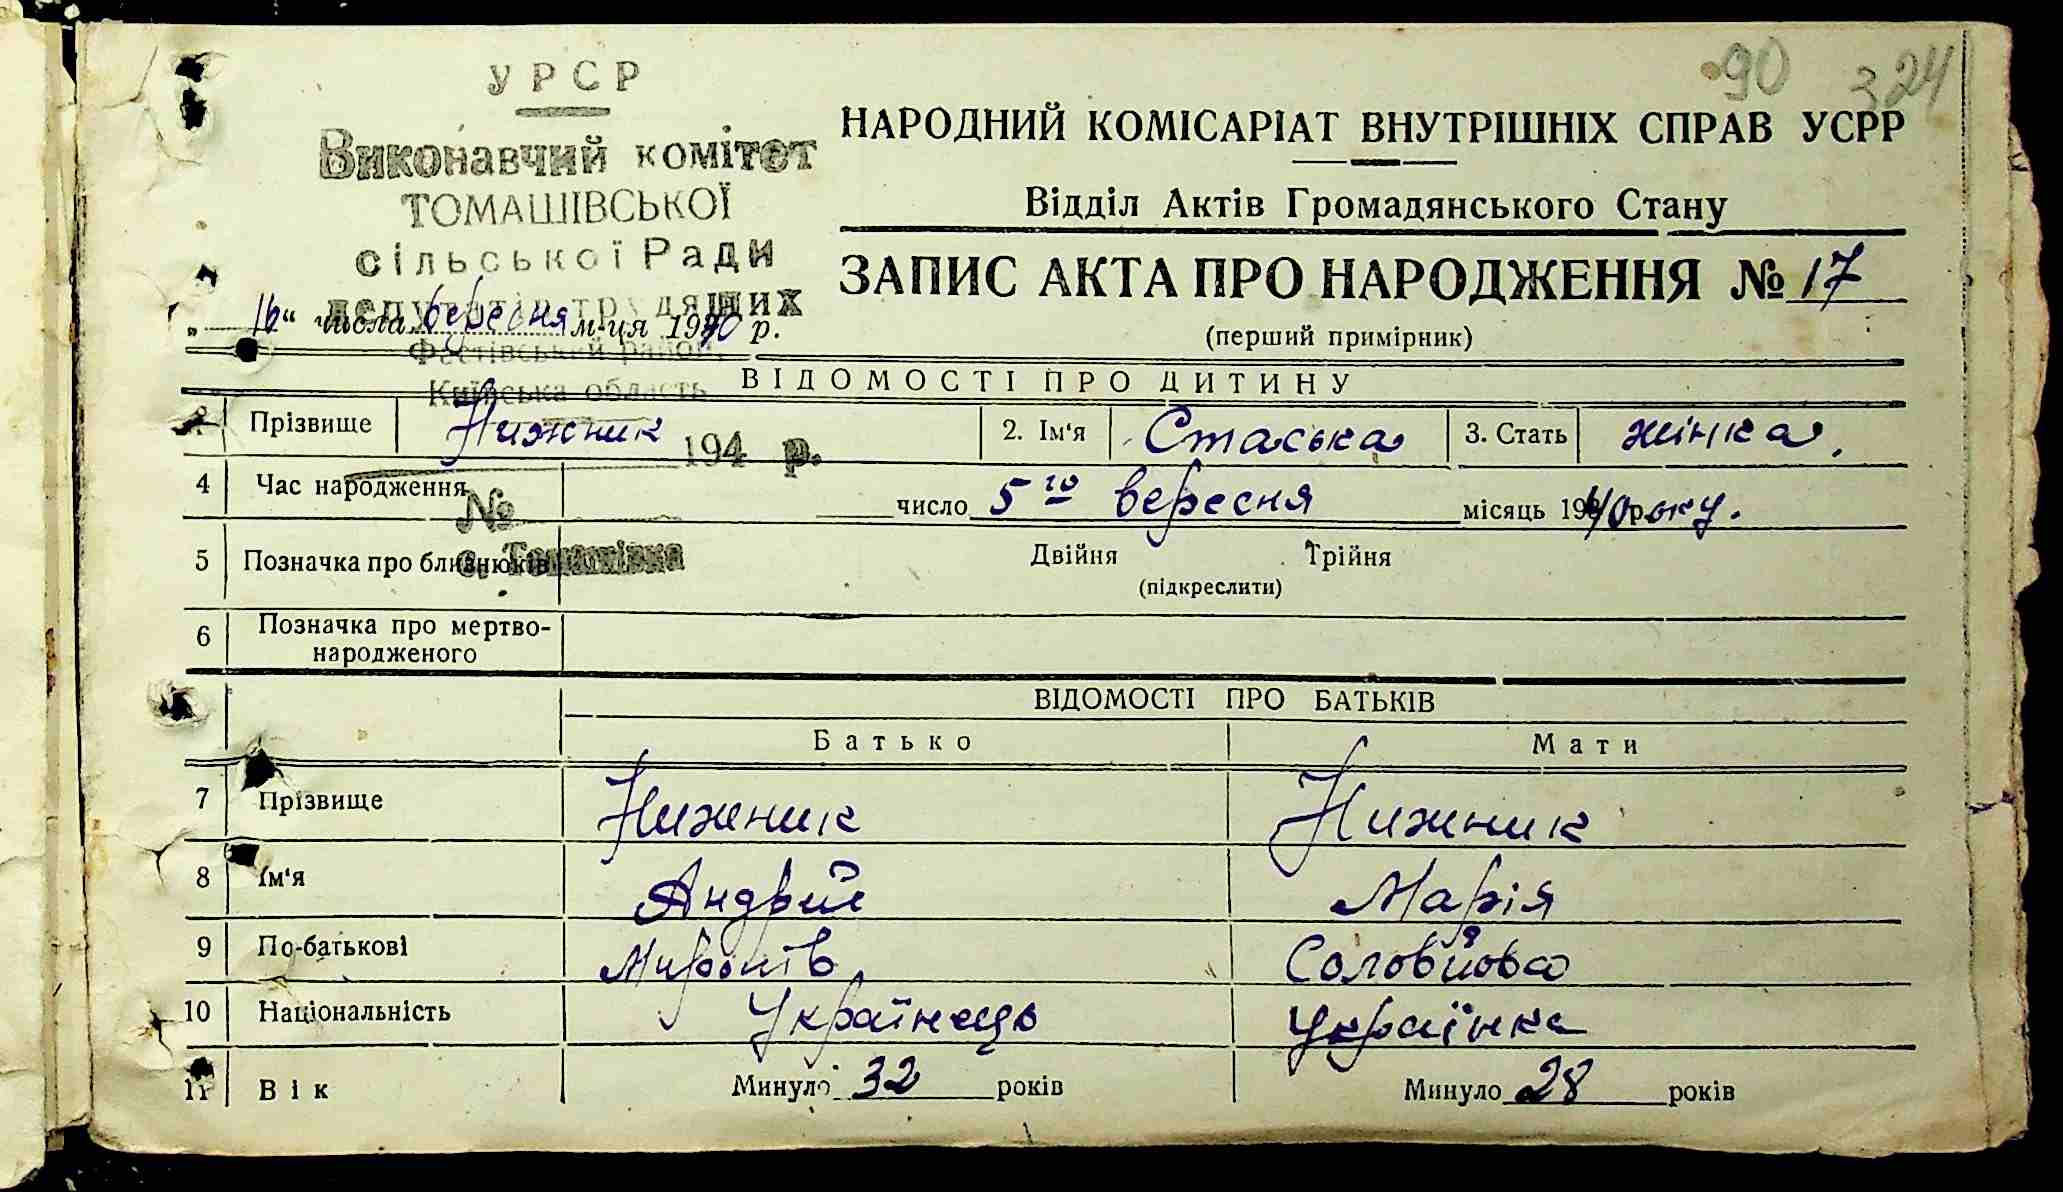 90 324
УРСР
Виконавчий комітет
ТОМАШІВСЬКОЇ
сільської Ради
депутатів трудящих
Фастівський район
Київська область
194 р.
№
с. Томашівка
НАРОДНИЙ КОМІСАРІАТ ВНУТРІШНІХ СПРАВ УСРР
Відділ Актів Громадянського Стану
ЗАПИС АКТА ПРО НАРОДЖЕННЯ № 17
(перший примірник)
„16“ числа вересня м-ця 1940 р.
ВІДОМОСТІ ПРО ДИТИНУ
1. Прізвище Нижник 2. Ім'я Стаська 3. Стать жінка.
4 Час народження число 5го вересня місяць 1940 року.
5 Позначка про близнюків Двійня Трійня
(підкреслити)
6 Позначка про мертво-
народженого
ВІДОМОСТІ ПРО БАТЬКІВ
Батько Мати
7 Прізвище Нижник Нижник
8 Ім'я Андрій Марія
9 По-батькові Миронів Соловйова
10 Національність Українець Українка
11 Вік Минуло 32 років Минуло 28 років